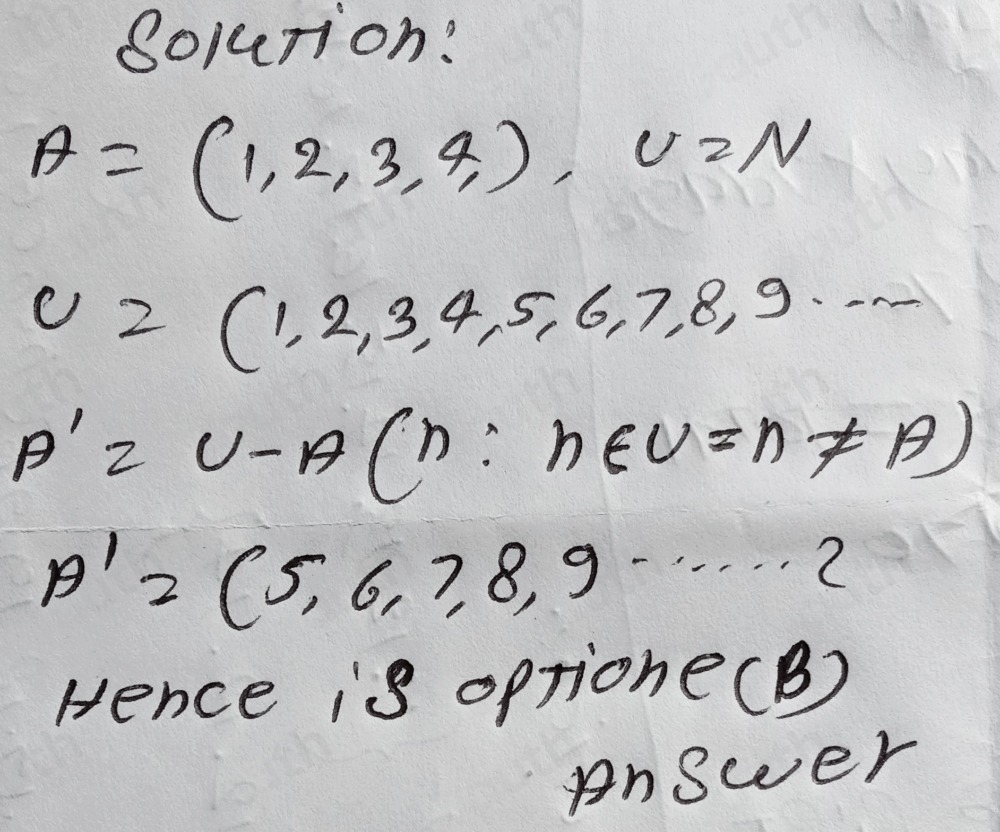 Solution:
A = (1, 2, 3, 4,), U = N
U = (1, 2, 3, 4, 5, 6, 7, 8, 9 ......
A' = U - A (n : n ∈ U = n ≠ A)
A' = (5, 6, 7, 8, 9 ....... 2
Hence is optione (B)
Answer